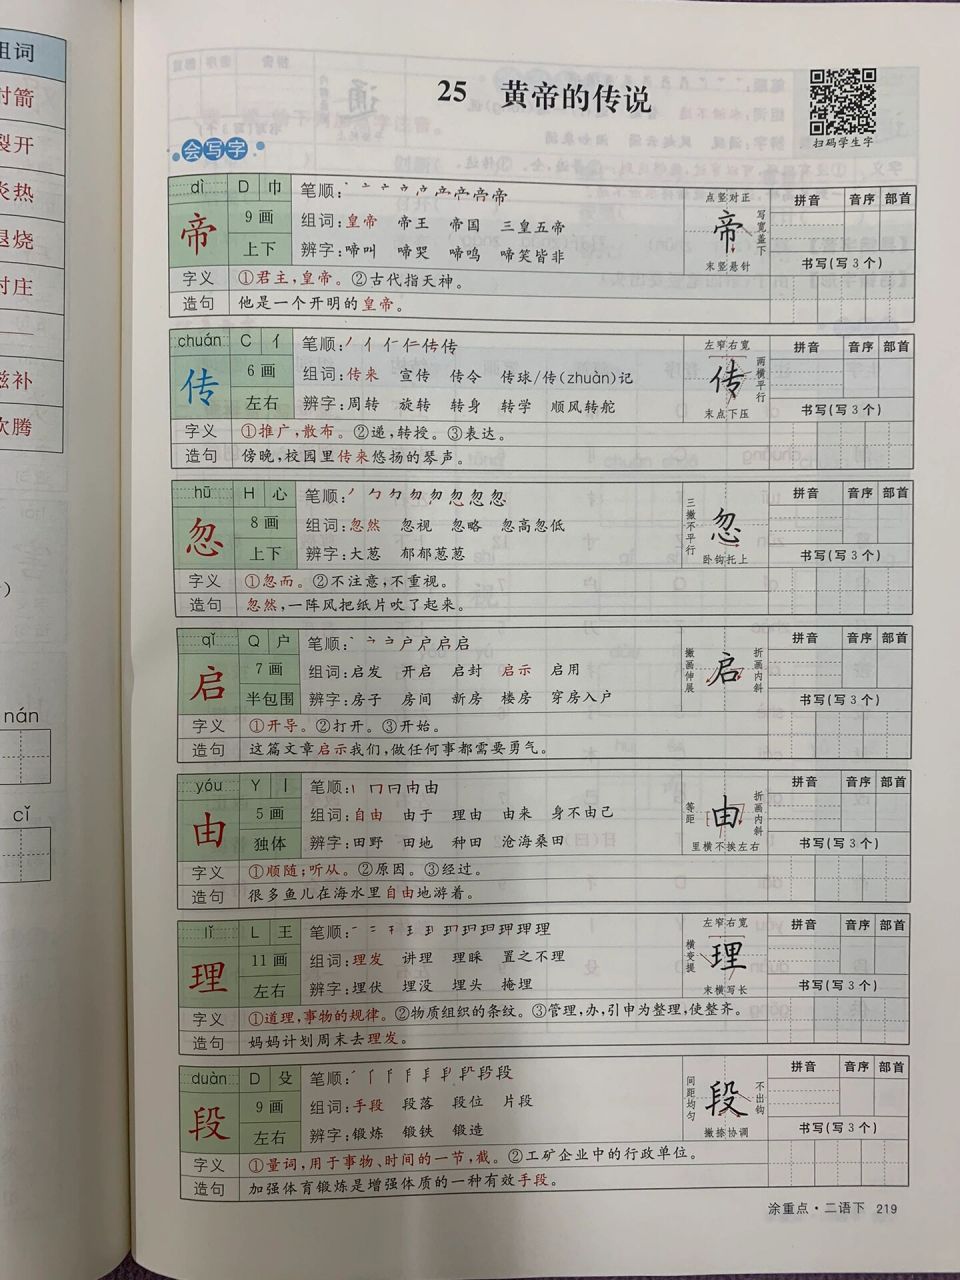 组词
射箭
裂开
炎热
退烧
村庄
滋补
欢腾
nán
cǐ
25 黄帝的传说
扫码学生字
会写字
dì D 巾 笔顺:
帝 9 画 组词:皇帝 帝王 帝国 三皇五帝
上下 辨字:啼叫 啼哭 啼鸣 啼笑皆非
字义 ①君主,皇帝。②古代指天神。
造句 他是一个开明的皇帝。
点竖对正
写宽盖下
帝
末竖悬针
拼音 音序 部首
书写(写3个)
chuán C 亻 笔顺:
传 6 画 组词:传来 宣传 传令 传球/传(zhuàn)记
左右 辨字:周转 旋转 转身 转学 顺风转舵
字义 ①推广,散布。②递,转授。③表达。
造句 傍晚,校园里传来悠扬的琴声。
左窄右宽
两横平行
传
末点下压
拼音 音序 部首
书写(写3个)
hū H 心 笔顺:
忽 8 画 组词:忽然 忽视 忽略 忽高忽低
上下 辨字:大葱 郁郁葱葱
字义 ①忽而。②不注意,不重视。
造句 忽然,一阵风把纸片吹了起来。
三撇不平行
忽
卧钩托上
拼音 音序 部首
书写(写3个)
qǐ Q 户 笔顺:
启 7 画 组词:启发 开启 启封 启示 启用
半包围 辨字:房子 房间 新房 楼房 穿房入户
字义 ①开导。②打开。③开始。
造句 这篇文章启示我们,做任何事都需要勇气。
撇画伸展
启
折画内斜
拼音 音序 部首
书写(写3个)
yóu Y 丨 笔顺:
由 5 画 组词:自由 由于 理由 由来 身不由己
独体 辨字:田野 田地 种田 沧海桑田
字义 ①顺随;听从。②原因。③经过。
造句 很多鱼儿在海水里自由地游着。
等距
由
折画内斜
里横不挨左右
拼音 音序 部首
书写(写3个)
lǐ L 王 笔顺:
理 11 画 组词:理发 讲理 理睬 置之不理
左右 辨字:埋伏 埋没 埋头 掩埋
字义 ①道理,事物的规律。②物质组织的条纹。③管理,办,引申为整理,使整齐。
造句 妈妈计划周末去理发。
左窄右宽
横变提
理
末横写长
拼音 音序 部首
书写(写3个)
duàn D 殳 笔顺:
段 9 画 组词:手段 段落 段位 片段
左右 辨字:锻炼 锻铁 锻造
字义 ①量词,用于事物、时间的一节,截。②工矿企业中的行政单位。
造句 加强体育锻炼是增强体质的一种有效手段。
间距均匀
段
不出钩
撇捺协调
拼音 音序 部首
书写(写3个)
涂重点·二语下 219